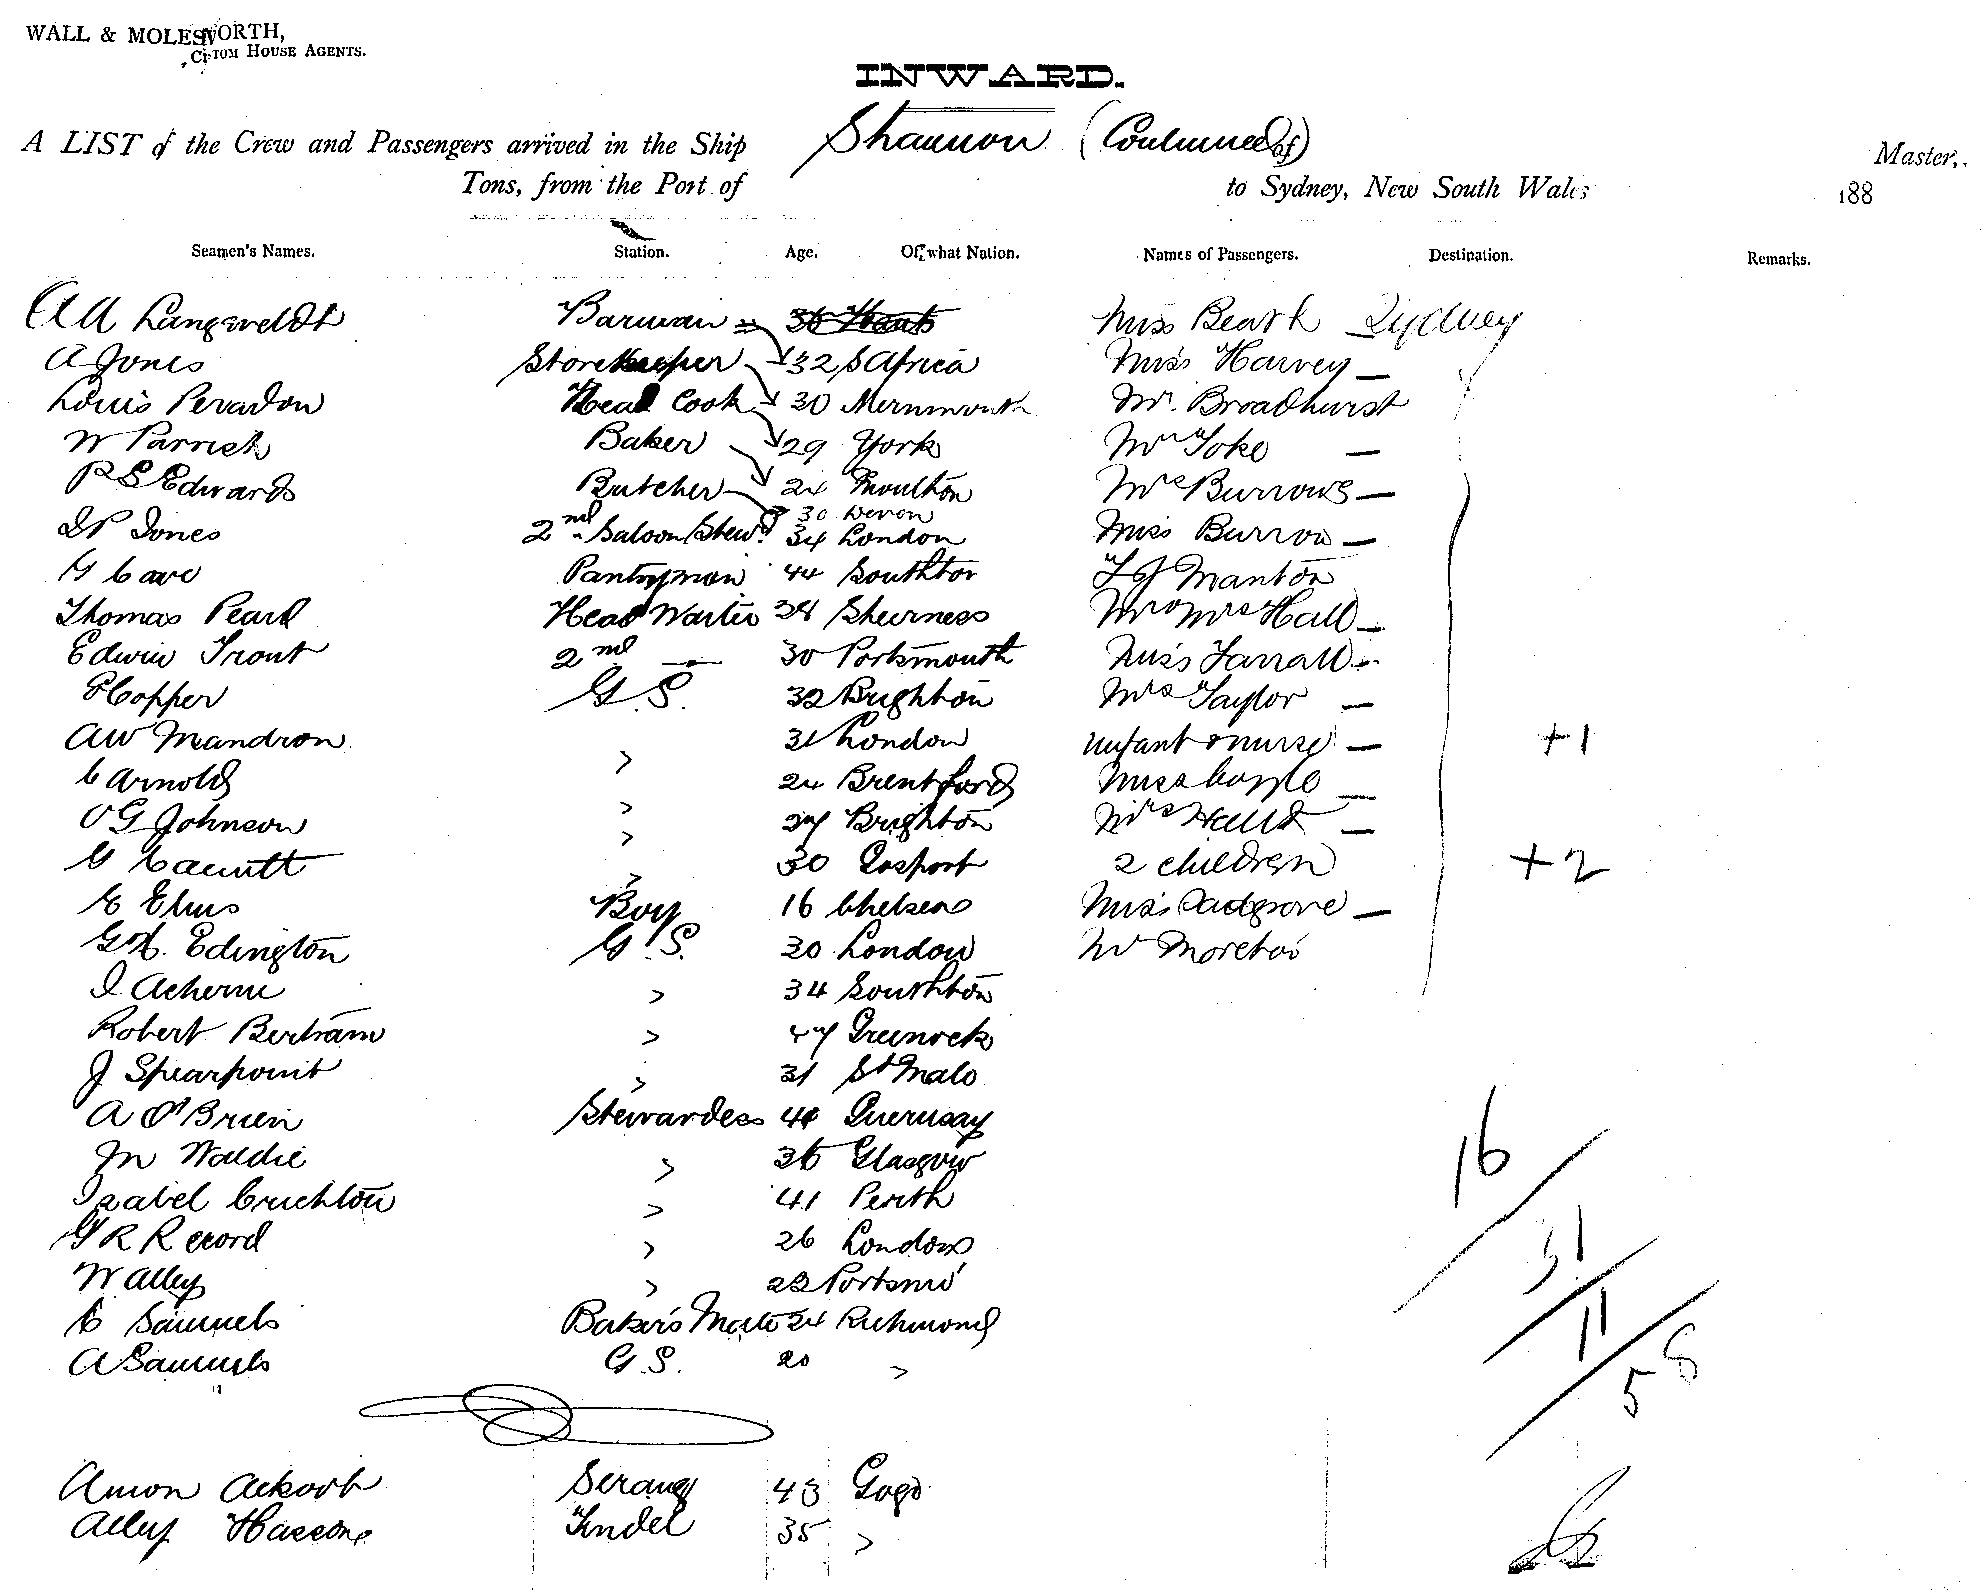 WALL & MOLESWORTH,
CUSTOM HOUSE AGENTS.
INWARD.
A LIST of the Crew and Passengers arrived in the Ship Shannon (Continued) of Master,
Tons, from the Port of to Sydney, New South Wales 188
Seamen's Names. Station. Age. Of what Nation. Names of Passengers. Destination. Remarks.
Langeveldt Barman 36 Hants Miss Sydney
A Jones Storekeeper 32 S Africa Miss Harvey —
Louis Pevadon Head Cook 30 Mr. Broadhurst
W Parrish Baker 29 York Mr Toke —
R S Edwards Butcher 24 Moulton Mrs Burrows —
30 Devon
D P Jones 2nd Saloon Stewd 34 London Miss Burrow —
G Cave Pantryman 44 Southton L J Manton
Thomas Pearl Head Waiter 38 Sheerness Mr & Mrs Hall —
Edwin Trout 2nd — 30 Portsmouth Miss Farrall —
Copper G. S. 32 Brighton Mrs Taylor —
A W Mandron > 31 London infant & nurse — +1
C Arnold > 24 Brentford Miss —
O G Johnson > 27 Brighton Mrs —
G > 30 Gosport 2 children +2
E Elms Boy 16 Chelsea Miss Padgrove —
G A. Edington G. S. 30 London Mr Moreton
> 34 Southton
Robert Bertram > 47 Greenock
J Spearpoint > 31 St Malo
A O'Brien Stewardess 40 Guernsay
M Waldie > 36 Glasgow
Isabel Crichton > 41 Perth
G R Record > 26 London
W Alley > 22 Portsmo'
C Samuels Baker's Mate 24 Richmond
A Samuels G. S. 20 >
16
31
11
58
Amon Ackoob Serang 43 Gogo
Alley Hassone Tindel 35 >